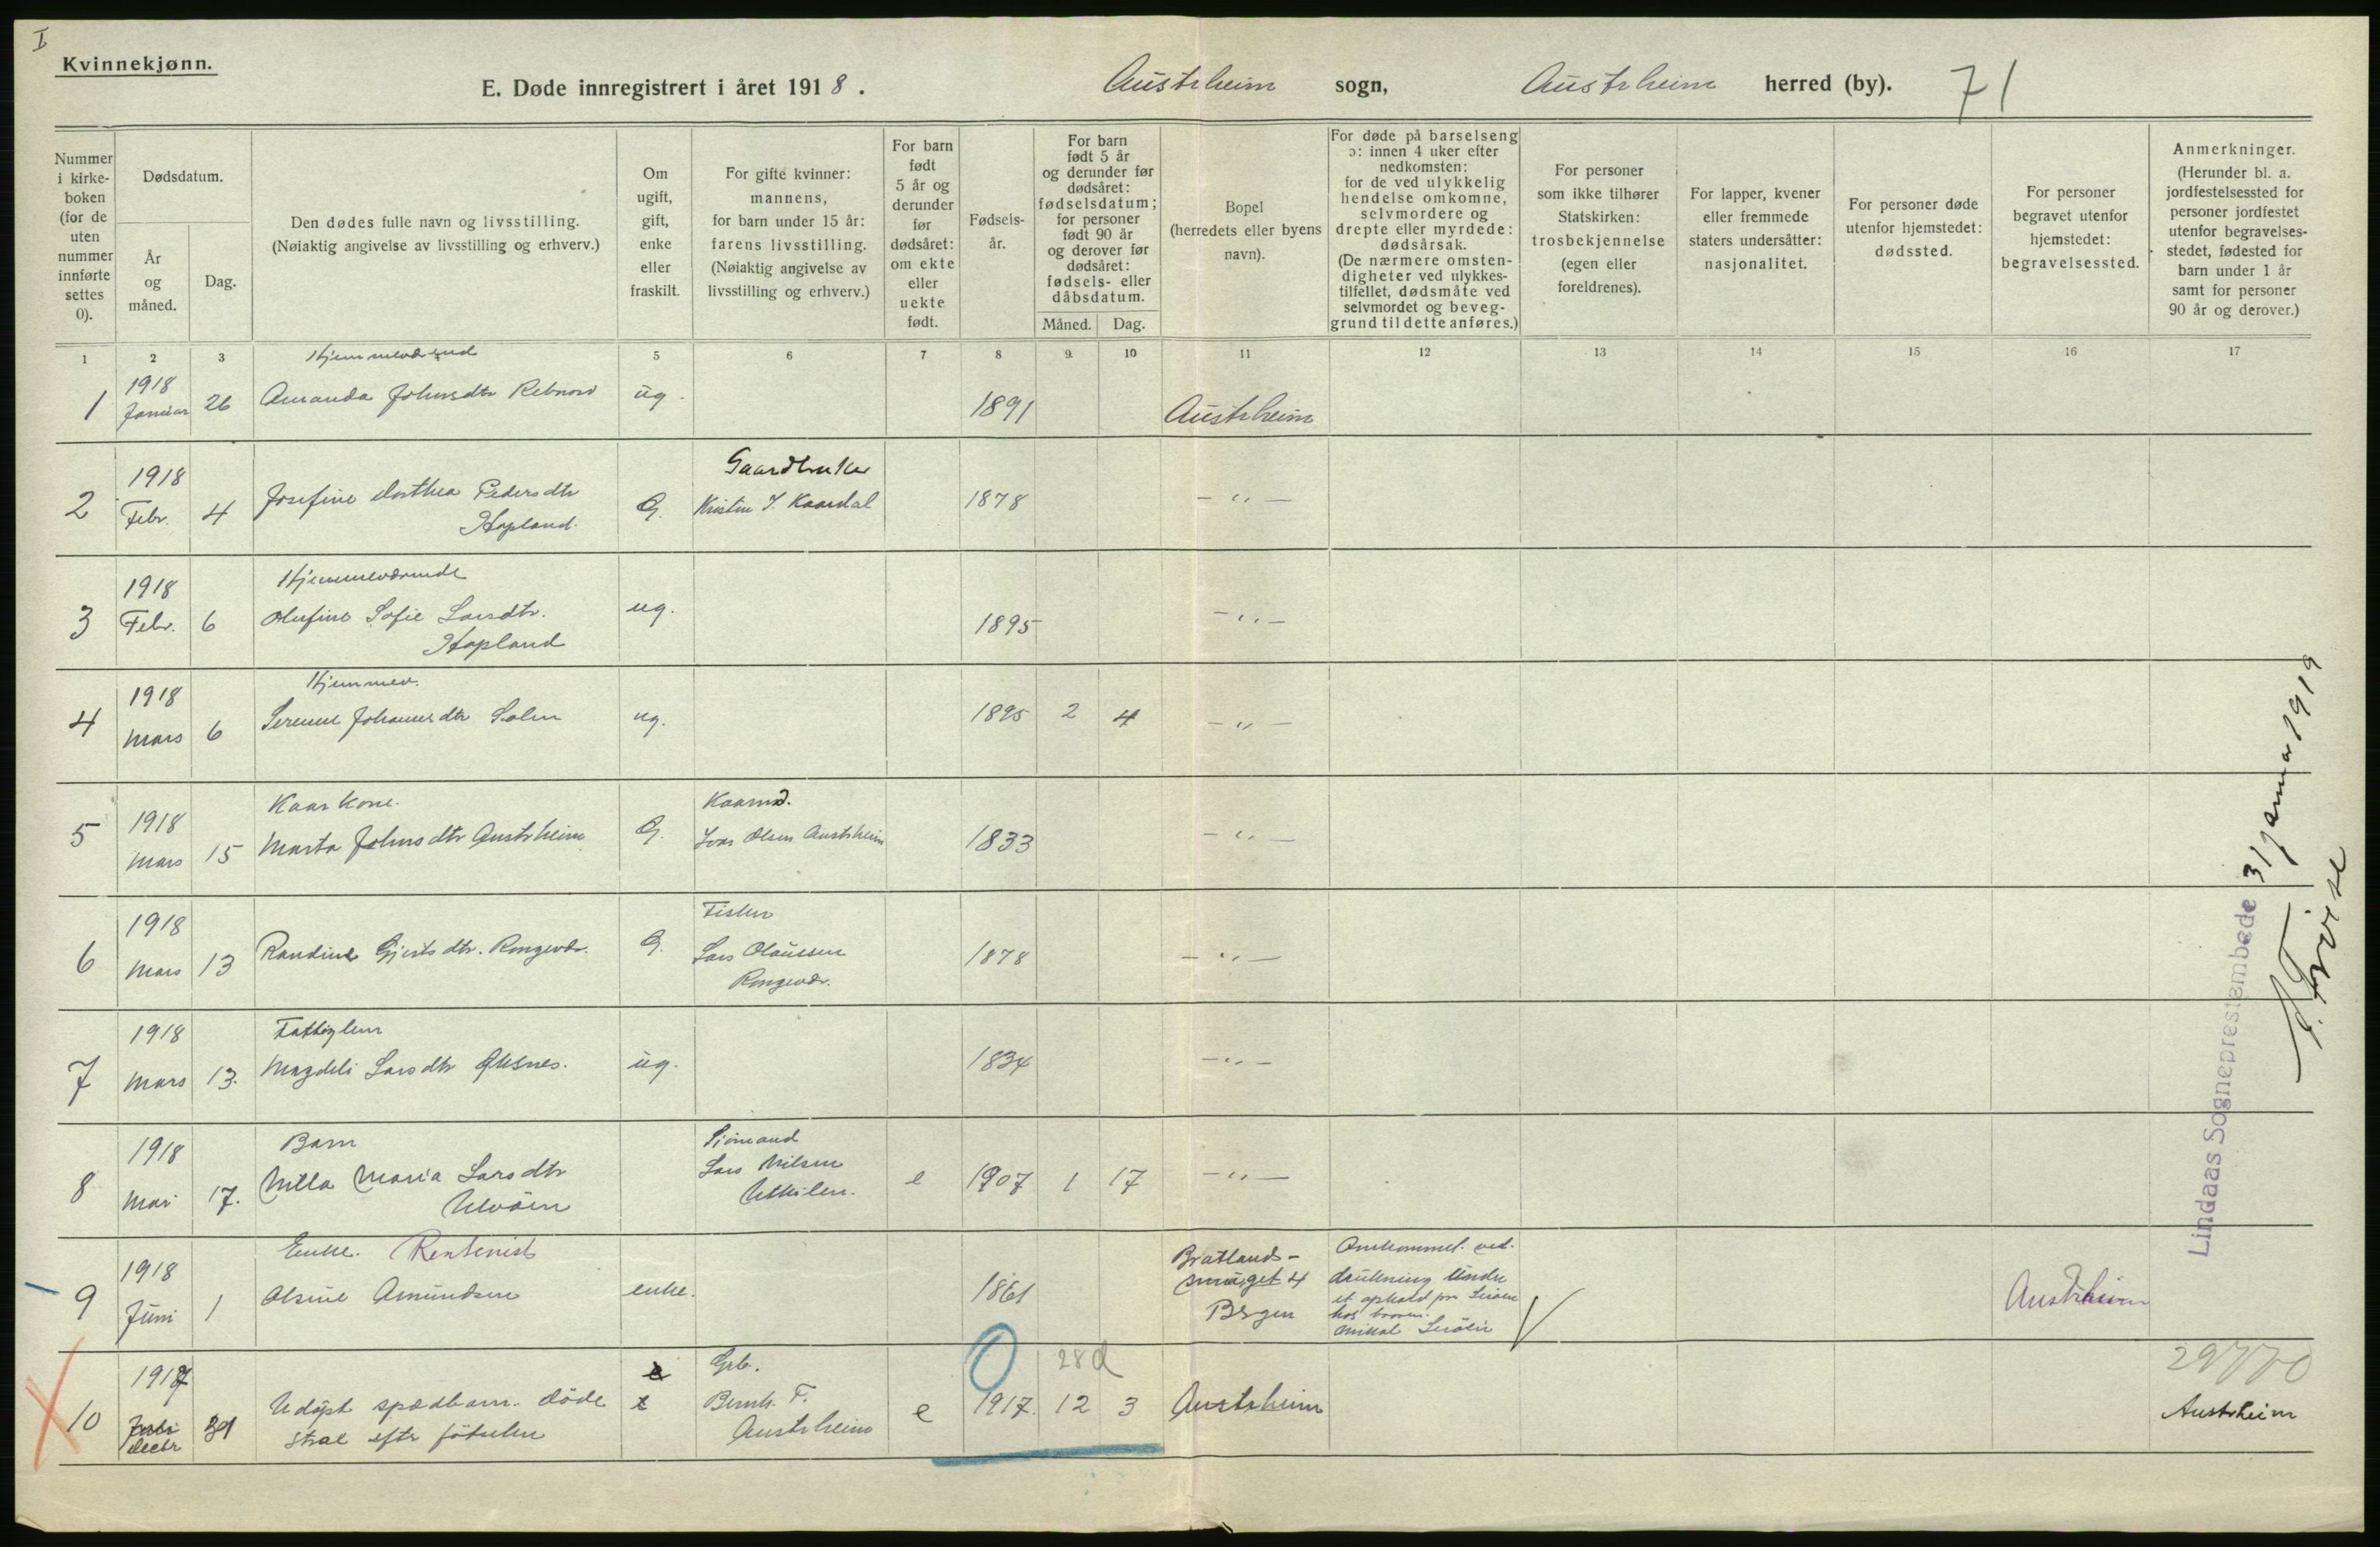 I
Kvinnekjønn.
E. Døde innregistrert i året 1918. Austrheim sogn, Austrheim herred (by). 71
Nummer i kirke-boken (for de uten nummer innførte settes 0).
Dødsdatum.
År og måned.
Dag.
Den dødes fulle navn og livsstilling.
(Nøiaktig angivelse av livsstilling og erhverv.)
Om ugift, gift, enke eller fraskilt.
For gifte kvinner: mannens, for barn under 15 år: farens livsstilling. (Nøiaktig angivelse av livsstilling og erhverv.)
For barn født 5 år og derunder før dødsåret: om ekte eller uekte født.
Fødsels-år.
For barn født 5 år og derunder før dødsåret: fødselsdatum; for personer født 90 år og derover før dødsåret: fødsels- eller dåbsdatum.
Måned. Dag.
Bopel (herredets eller byens navn).
For døde på barselseng ɔ: innen 4 uker efter nedkomsten: for de ved ulykkelig hendelse omkomne, selvmordere og drepte eller myrdede: dødsårsak. (De nærmere omsten-digheter ved ulykkes-tilfellet, dødsmåte ved selvmordet og beveg-grund til dette anføres.)
For personer som ikke tilhører Statskirken: trosbekjennelse (egen eller foreldrenes).
For lapper, kvener eller fremmede staters undersåtter: nasjonalitet.
For personer døde utenfor hjemstedet: dødssted.
For personer begravet utenfor hjemstedet: begravelsessted.
Anmerkninger. (Herunder bl. a. jordfestelsessted for personer jordfestet utenfor begravelses-stedet, fødested for barn under 1 år samt for personer 90 år og derover.)
1 2 3 5 6 7 8 9. 10 11 12 13 14 15 16 17
1 1918 Januar 26 Amanda Johnsdtr ug. 1891 Austrheim
2 1918 Febr. 4 Josefine Dorthea Pedersdtr Hopland. G. Gaardbruker Kaardal 1878 - " -
3 1918 Febr. 6 Hjemmeværende Olufine Sofie Larsdtr. Hopland ug. 1895 - " -
4 1918 Mars 6 Hjemmev. Johannesdtr ug. 1895 2 4 - " -
5 1918 Mars 15 Kaarkone. Marta Johnsdtr Austrheim G. Kaarmd. Ivar Olsen Austrheim 1833 - " -
6 1918 Mars 13 Randine Gjertsdtr. Rongevær. G. Fisker Lars Olaussen Rongevær. 1878 - " -
7 1918 Mars 13. Fattiglem Magdeli Larsdtr ug. 1834 - " -
8 1918 Mai 17. Barn Maria Larsdtr Sjömand Lars Nilsen Utkilen. e 1907 1 17 - " -
9 1918 Juni 1 Enke. Rentenist Amundsen enke. 1861 Bratlands-smuget 4 Bergen Omkommet ved. drukning under et ophold hos Austrheim
10 1917 decbr 31 Udöpt spædbarn. döde strax eftr födselen Grb. Bernh. T. Austrheim e 0 1917. 28 d 12 3 Austrheim Austrheim
Lindaas Sogneprestembede 31 januar 1919